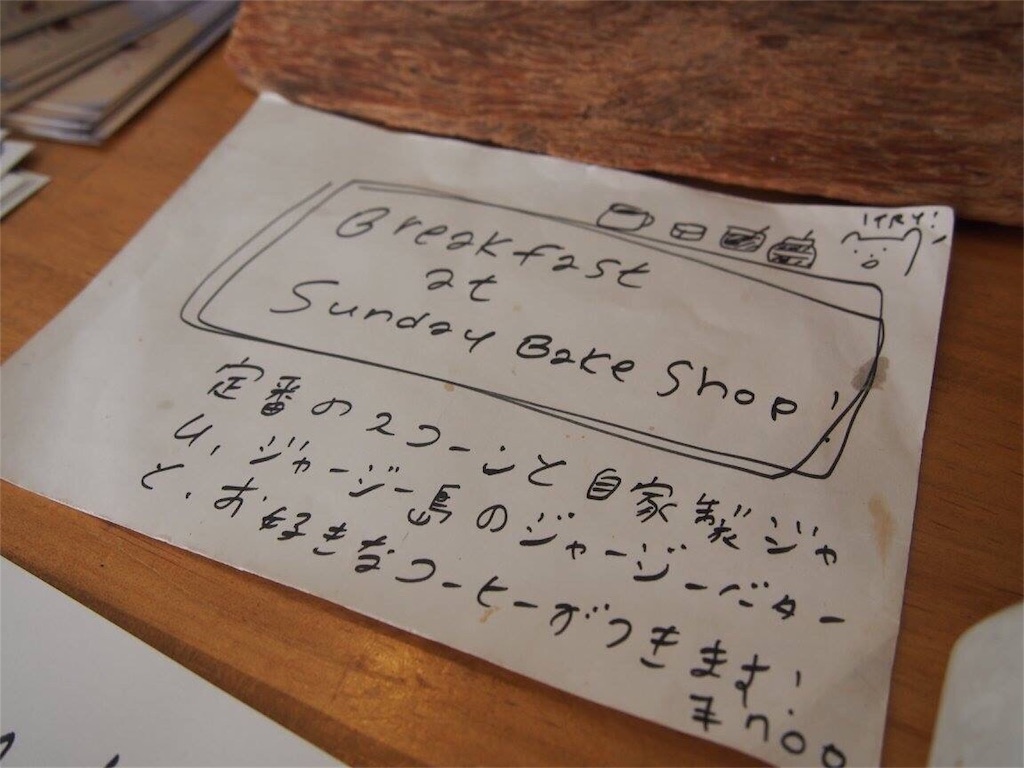 !TRY!
Breakfast
at
Sunday Bake Shop!
定番のスコーンと自家製ジャ
ム、ジャージー島のジャージーバター
と、お好きなコーヒーがつきます!
¥700